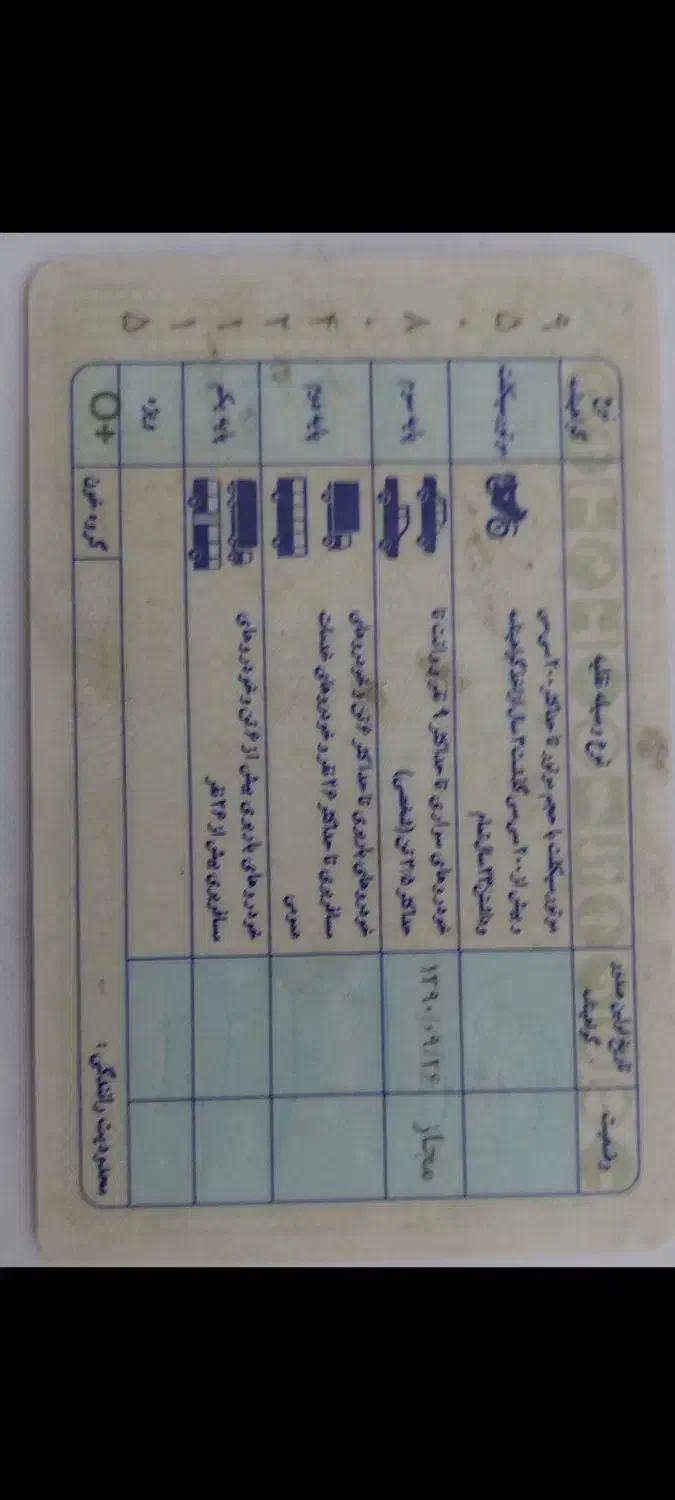 وضعیت
تاریخ اولین صدور
گواهینامه
نوع وسیله نقلیه
نوع
گواهینامه
موتورسیکلت با حجم موتور تا حداکثر ۲۰۰ سی سی
و بیش از ۲۰۰ سی سی گذشت ۲ سال از اخذ گواهینامه
و داشتن ۲۳ سال تمام
موتورسیکلت
مجاز
۱۳۹۰/۰۹/۲۶
خودروهای سواری تا حداکثر ۹ نفر و وانت تا
حداکثر ۳/۵ تن (شخصی)
پایه سوم
خودروهای باربری تا حداکثر ۶ تن و خودروهای
مسافربری تا حداکثر ۲۶ نفر و خودروهای خدمات
عمومی
پایه دوم
خودروهای باربری بیش از ۶ تن و خودروهای
مسافربری بیش از ۲۶ نفر
پایه یکم
ویژه
محدودیت رانندگی :
-
گروه خون
O+
۹ ۵ ۰ ۸ ۰ ۴ ۳ ۱ ۱ ۵